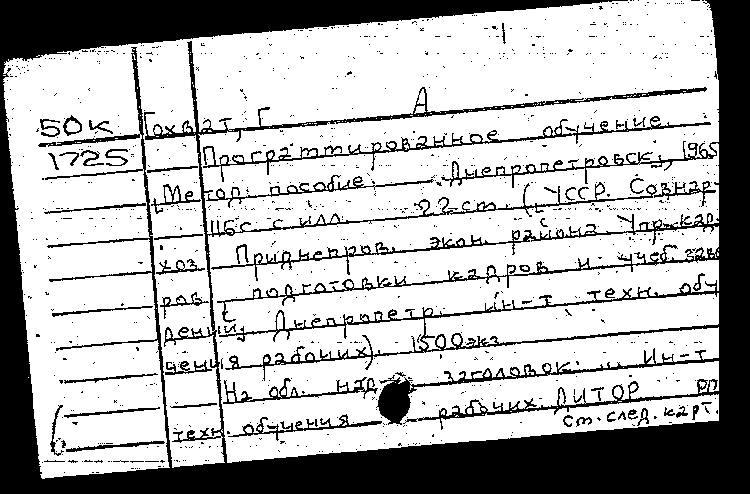 А
50К Гохват, Г
1725 Программированное обучение.
[Метод. пособие. Днепропетровск, 1965
116с. с илл. 22см. (УССР. Совнар-
хоз Приднепров. экон. района. Упр. кад-
ров, подготовки кадров и учеб. заве
дений, Днепропетр. ин-т техн. обу
чения рабочих). 1500экз
На обл. над- заголовок: .. Ин-т
техн. обучения рабочих. ДИТОР РП
См. след. карт.
б